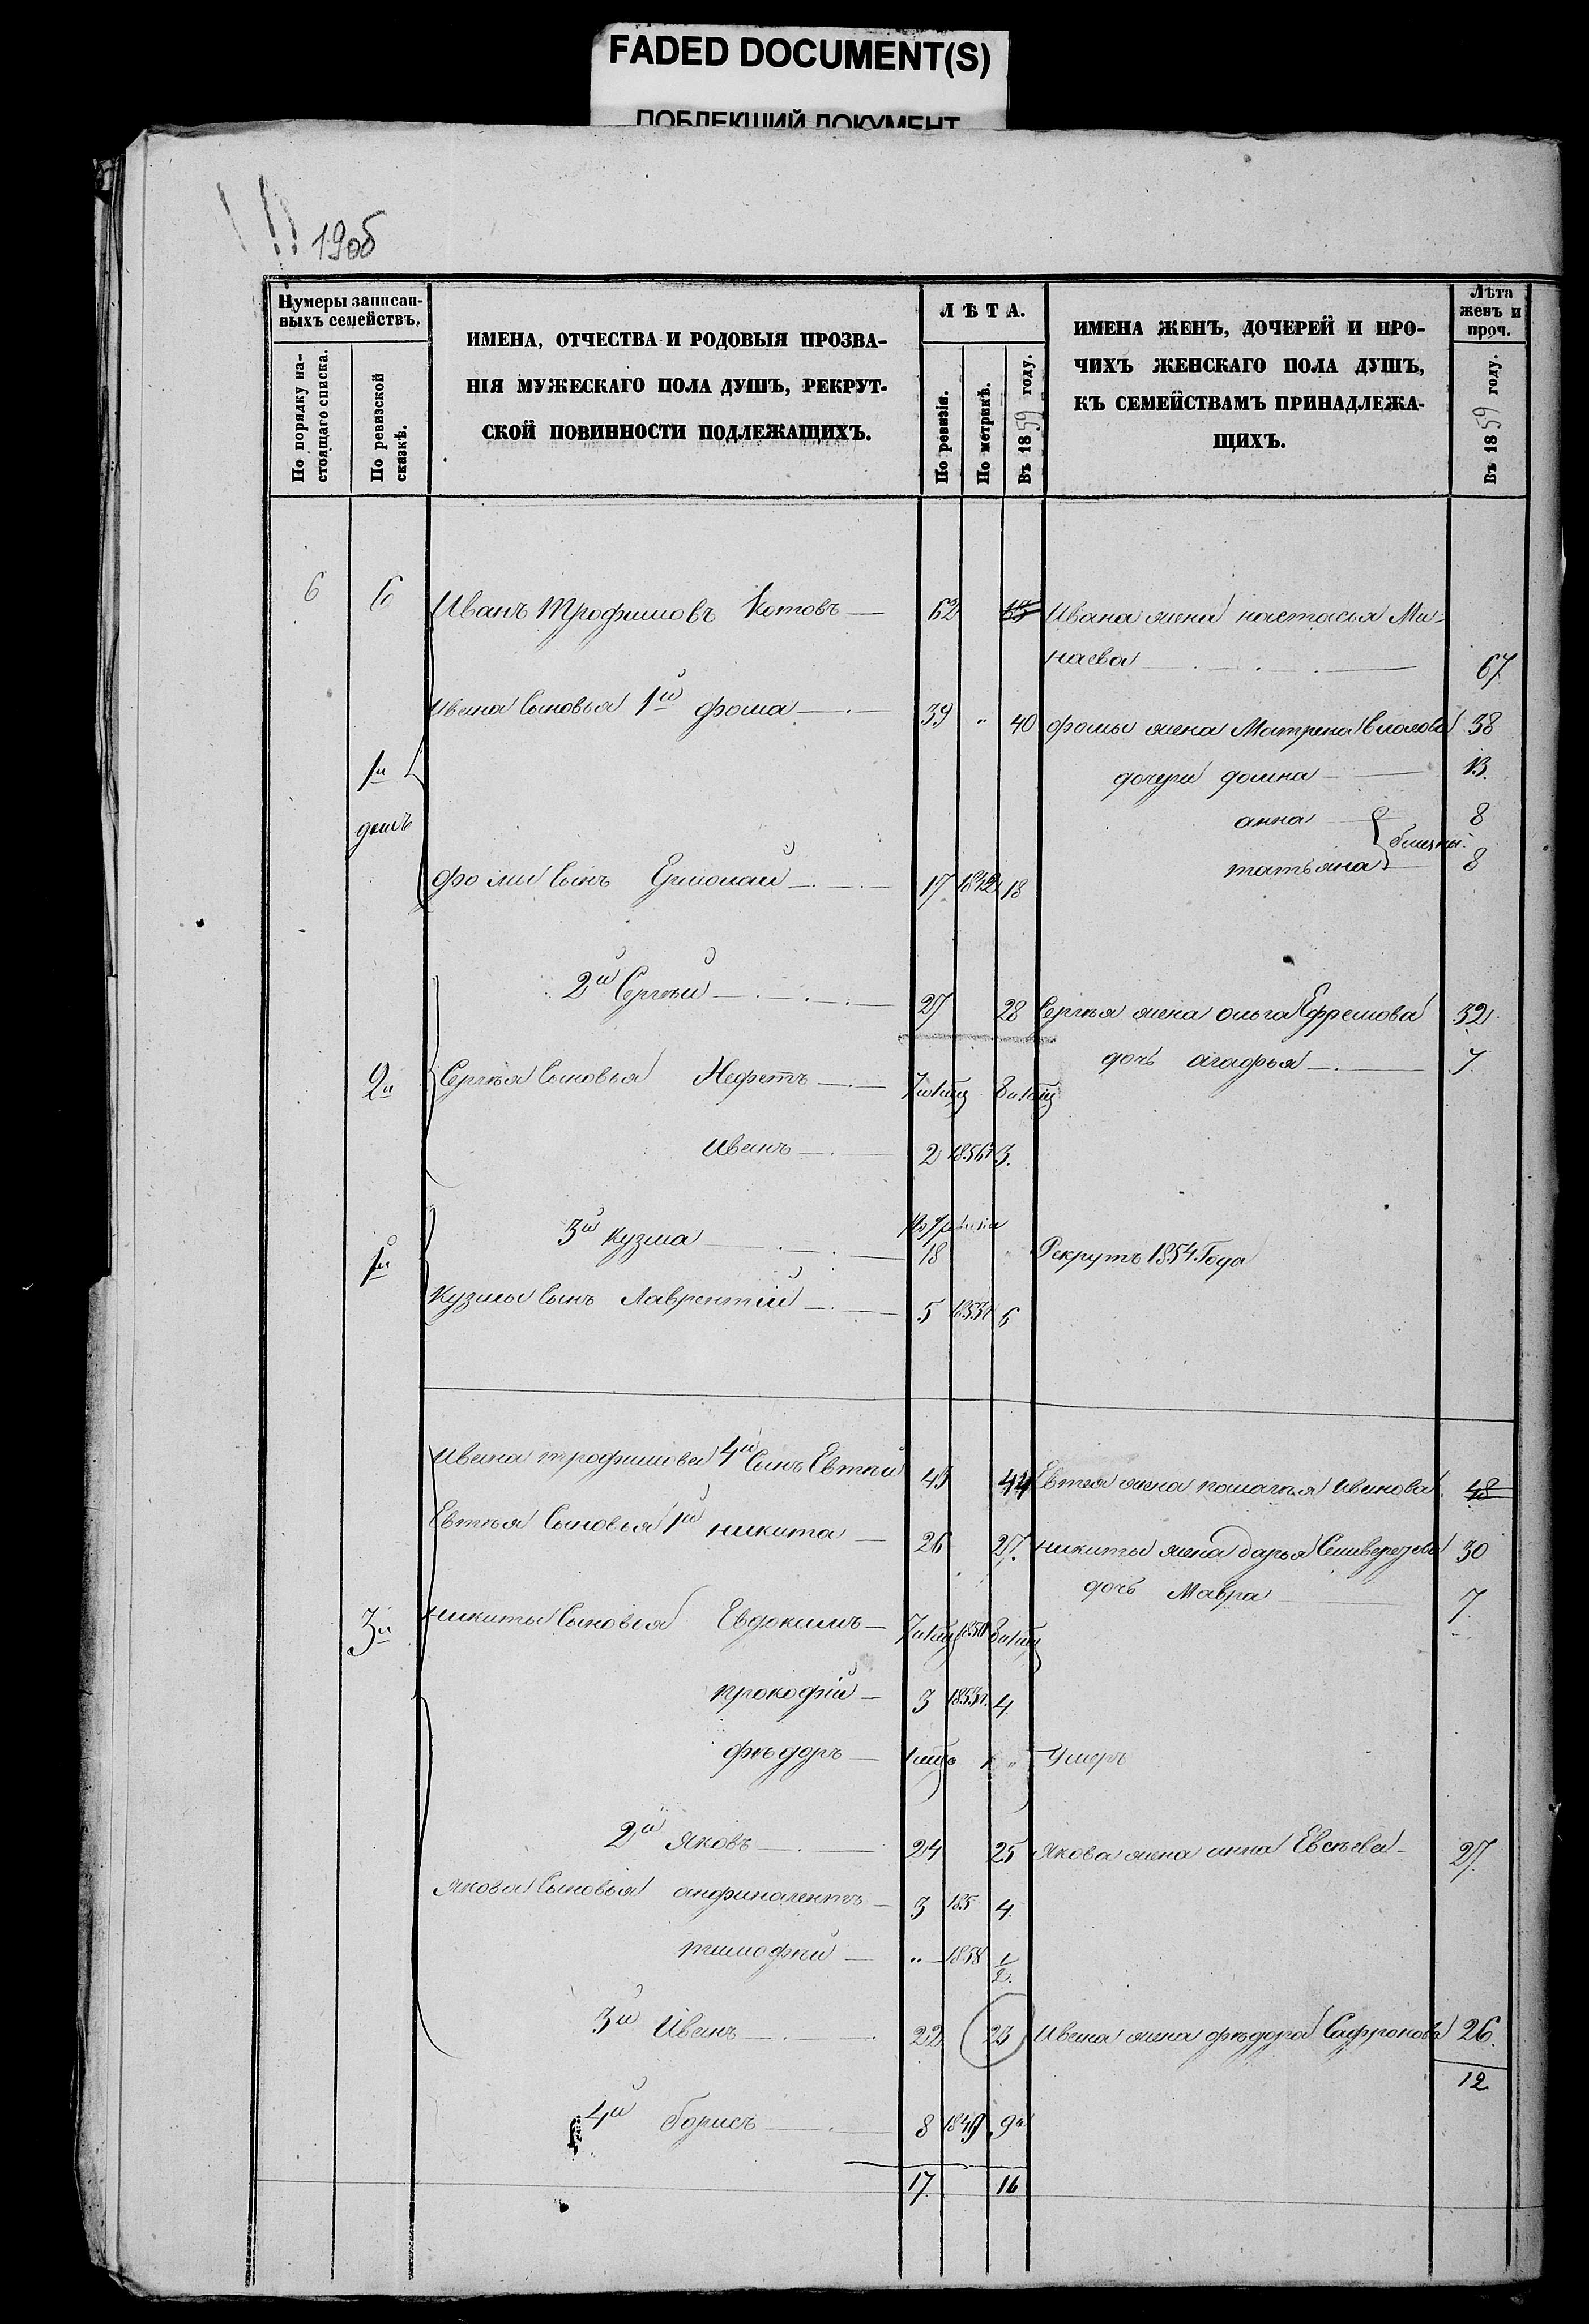 FADED DOCUMENT(S)
ПОБЛЕКШИЙ ДОКУМЕНТ
190б
Нумеры записан-
ныхъ семействъ.
По порядку на-
стоящаго списка.
По ревизской
сказкѣ.
ИМЕНА, ОТЧЕСТВА И РОДОВЫЯ ПРОЗВА-
НІЯ МУЖЕСКАГО ПОЛА ДУШЪ, РЕКРУТ-
СКОЙ ПОВИННОСТИ ПОДЛЕЖАЩИХЪ.
ЛѢТА.
По ревизіи.
По метрикѣ.
Въ 1859 году.
ИМЕНА ЖЕНЪ, ДОЧЕРЕЙ И ПРО-
ЧИХЪ ЖЕНСКАГО ПОЛА ДУШЪ,
КЪ СЕМЕЙСТВАМЪ ПРИНАДЛЕЖА-
ЩИХЪ.
Лѣта
женъ и
проч.
Въ 1859 году.
6 6 Иванъ Трофимовъ Котовъ 62 63 Ивана жена настасья Ми-
наева 67
Ивана Сыновья 1й фома 39 " 40 фомы жена Матрена 38
1й дочери домна 13
домъ анна 8
близны
татьяна 8
фомы Сынъ 17 1842 18
2й Сергѣй 27 28 Сергѣя жена ольга Ефремова 32
дочь агафья 7
2й Сергѣя Сыновья Нефетъ
Иванъ 2 1856 3
3й кузма 18 Рекрутъ 1854 Года
1й
кузмы Сынъ Лаврентий 5 1853 6
Ивана трофимова 4й Сынъ Евтѣй 43 44 Евтѣя жена пелагѣя Иванова 48
Евтѣя Сыновья 1й никита 26 27 никиты жена дарья 30
дочь Мавра 7
3й никиты Сыновья Евдокимъ
прокофий 3 4
фѣдоръ Умеръ
2й Яковъ 24 25 Якова жена анна Евсѣева 27
Якова Сыновья 3 185 4
тимофѣй " 1858 1/2
3й Иванъ 22 23 Ивана жена фѣдора Сафронова 26
12
4й борисъ 8 1849 9
17 16